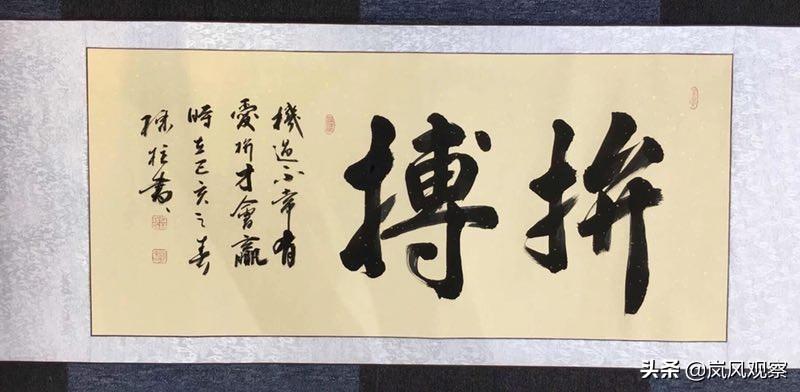 拼搏
機遇不常有
愛拼才會贏
時在己亥之春
柱書
头条 @岚风观察